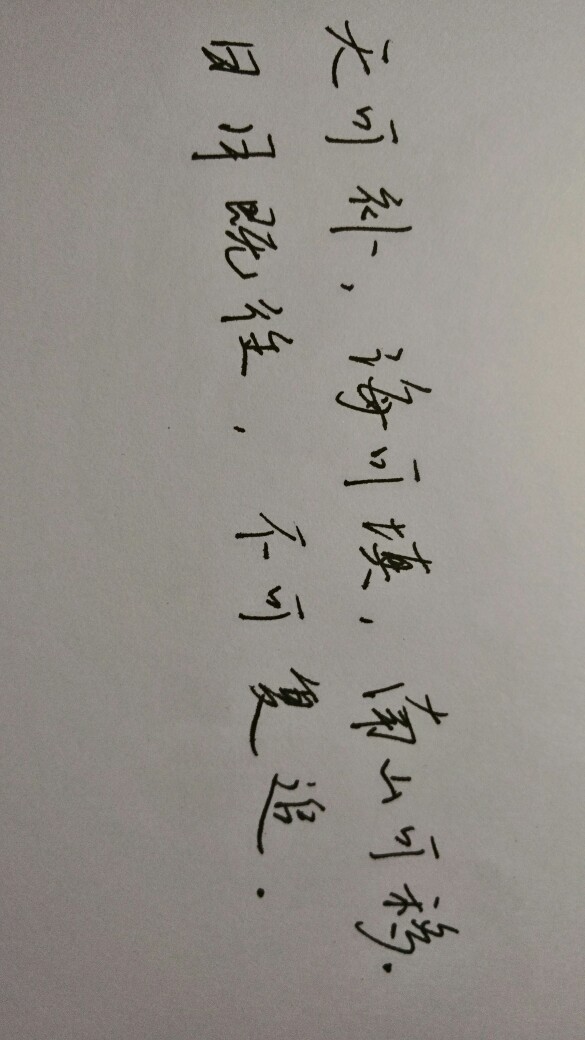 天可补,海可填,南山可移.
日月既往,不可复追.